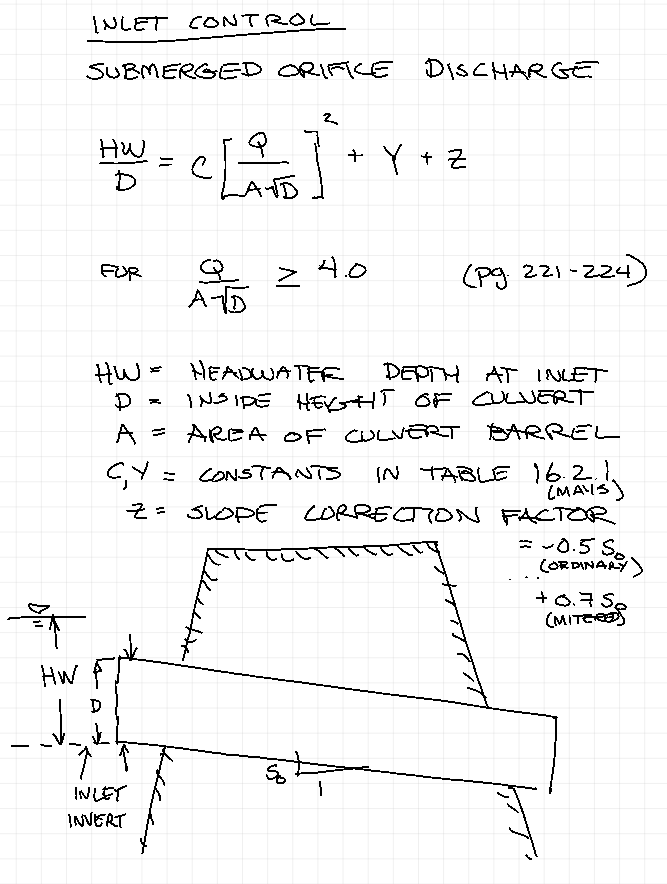 INLET CONTROL
SUBMERGED ORIFICE DISCHARGE
HW/D = C [Q/A√D]² + Y + Z
FOR Q/A√D ≥ 4.0 (pg. 221-224)
HW = HEADWATER DEPTH AT INLET
D = INSIDE HEIGHT OF CULVERT
A = AREA OF CULVERT BARREL
C,Y = CONSTANTS IN TABLE 16.2.1
(MAYS)
Z = SLOPE CORRECTION FACTOR
= -0.5 S₀
(ORDINARY)
+0.7 S₀
(MITERED)
HW
D
S₀
1
INLET
INVERT